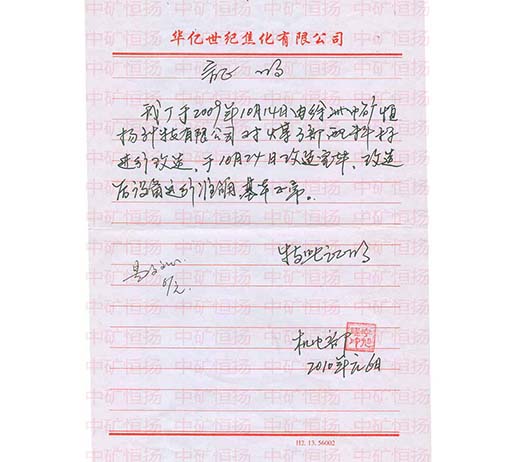 华亿世纪焦化有限公司
证 明
我厂于2009年10月14日由徐州中矿恒
扬科技有限公司对煤子部配料秤
进行改造，于10月24日改造完毕，改造
后设备运行准确基本正常。
特此证明
机电部
2010年元6日
H2. 13. 56002
中矿恒扬